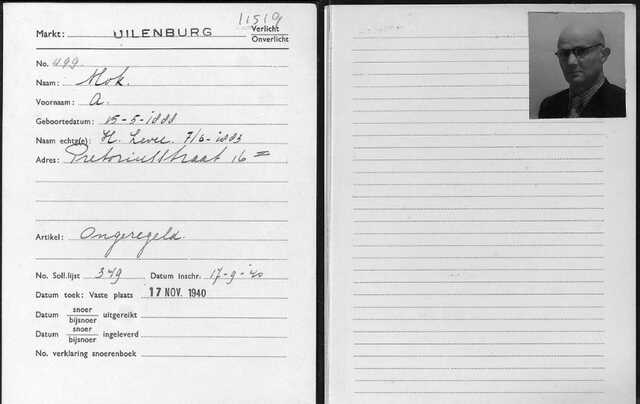 11519
Markt: UILENBURG Verlicht
Onverlicht
No. 499.
Naam: Mok.
Voornaam: A.
Geboortedatum: 15-5-1888
Naam echtg(e): H. Levie. 7/6-1883
Adres: Pretoriusstraat 16 II
Artikel: Ongeregeld.
No. Soll.lijst 349 Datum inschr. 17-9-40
Datum toek: Vaste plaats 17 NOV. 1940
Datum snoer
bijsnoer uitgereikt
Datum snoer
bijsnoer ingeleverd
No. verklaring snoerenboek